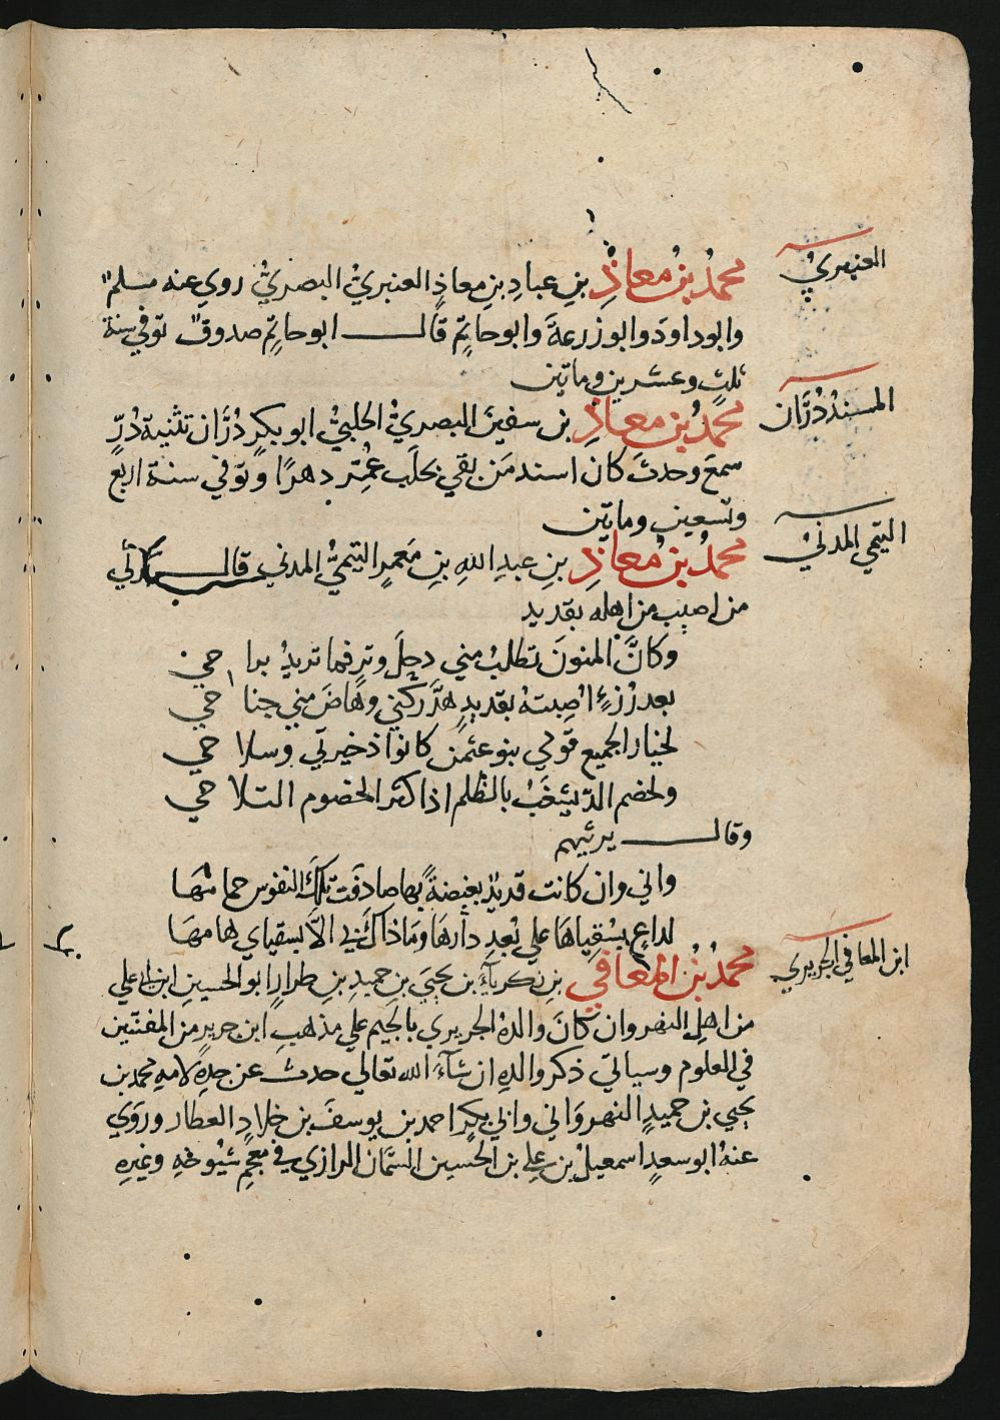 العنبريُّ
محمدُ بنُ معاذِ بنِ عبادِ بنِ معاذٍ العنبريُّ البصريُّ روي عنه مسلمٌ
وابو داودَ وابو زرعةَ وابو حاتِمٍ قال ابو حاتِمٍ صدوقٌ توفي سنة
ثلثٍ وعشرين وماتين
المسندُ دُرَّان
محمدُ بنُ معاذِ بن سفينَ البصريُّ الحلبيُّ ابو بكرٍ دُرَّان تثنية دُرٍّ
سمعَ وحدثَ كان اسند مَن بقي بحلَب عُمِّر دهرًا وتوفي سنة اربع
وتسعين وماتين
التيمي المدنيُّ
محمدُ بنُ معاذِ بنِ عبدِ اللهِ بنِ مَعمرٍ التيميُّ المدني قال يرثي
من اصيب من اهله بقديد
وكانَّ المنونَ تطلبُ مني دحِلَ وترٍ فما تريدُ براحي
بعد رُزءٍ اُصِبتهُ بقديدٍ هَدَّ ركني وهَاضَ مني جناحي
لخيار الجميع قومي بنو عثمن كانوا ذخيرتي وسلاحي
ولخصم الدّ يشغَبُ بالظلم اذا كثر الخصوم التلاحي
وقال يرثيهم
واني وان كانت قديدُ بغيضةً بها صادفَت تلكَ النفوس حمامها
لداعٍ بسُقياهَا علي بُعدِ دارهَا وما ذاك بي الاَّ بسقياي هامهَا
ابن المعافي الجريري
محمدُ بنُ المعافي بنِ زكرياءَ بن يحيَي بنِ حميدِ بنِ طرارٍ ابو الحسينِ ابن ابي علي
من اهل النهروان كانَ والدهُ الجريري بالجيم علي مذهبِ ابن جريرٍ من المفتّين
في العلوم وسياتي ذكر والدهِ ان شآءَ الله تعالي حدث عن جدهِ لامهِ محمد بن
يحيي بن حميدٍ النهروَاني وابي بكرٍ احمد بن يوسفَ بن خلادٍ العطار وروَي
عنهُ ابو سعدٍ اسمعيلُ بن علي بن الحسين السَّمَّان الرازي في معجم شيُوخهِ وغيرهِ